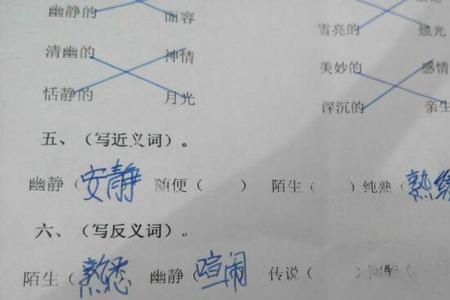 幽静的 面容
雪亮的 烛光
清幽的 神情
美妙的 感情
恬静的 月光
深沉的 亲生
五、（写近义词）。
幽静（安静 随便（ ） 陌生（ ）纯熟（熟练
六、（写反义词）。
陌生（熟悉 幽静（喧闹 传说（ ）